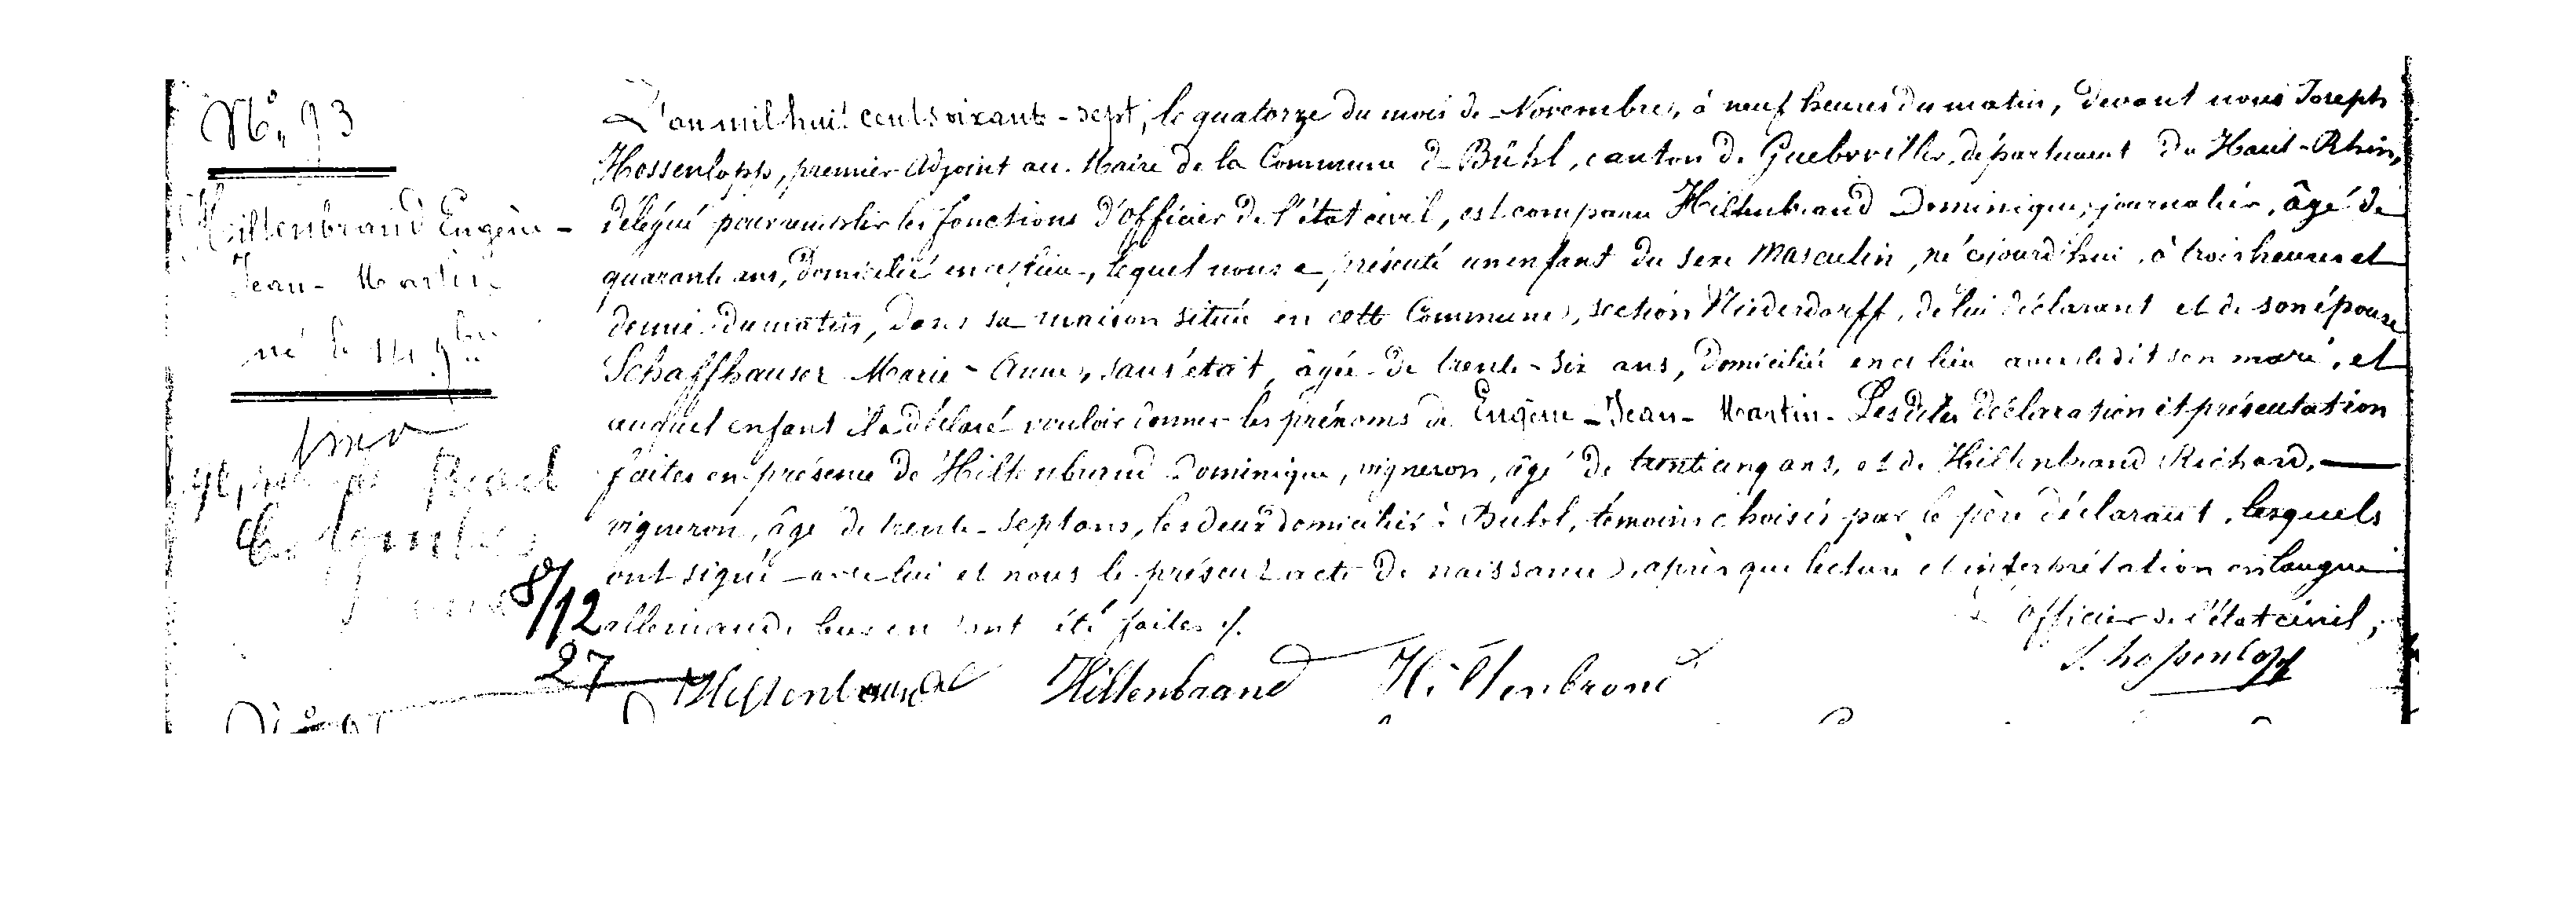 N° 93
Hiltenbrand Eugène-
Jean-Martin
né le 14 9bre
L'an mil huit cent soixante-sept, le quatorze du mois de Novembre, à neuf heures du matin, devant nous Joseph
Hossenlopp, premier Adjoint au Maire de la Commune de Bühl, canton de Guebwiller, département du Haut-Rhin,
délégué pour remplir les fonctions d'officier de l'état civil, est comparu Hiltenbrand Dominique, journalier, âgé de
quarante ans, domicilié en ce lieu, lequel nous a présenté un enfant du sexe masculin, né cejourd'hui, à trois heures et
demie du matin, dans sa maison située en cette Commune, section Niederdorff, de lui déclarant et de son épouse
Schaffhauser Marie-Anne, sans état, âgée de trente-six ans, domiciliée en ce lieu avec le dit son mari, et
auquel enfant il a déclaré vouloir donner les prénoms de Eugène-Jean-Martin. Les dites déclaration et présentation
faites en présence de Hiltenbrand Dominique, vigneron, âgé de trente cinq ans, et de Hiltenbrand Richard,
vigneron, âgé de trente-sept ans, les deux domiciliés à Buhl, témoins choisis par le père déclarant, lesquels
ont signé avec lui et nous le présent acte de naissance, après que lecture et interprétation en langue
allemande leur en ont été faites ./.
L'officier de l'état civil,
8/12
27
Hiltenbrand Hiltenbrand Hiltenbrand
J. hossenlopp